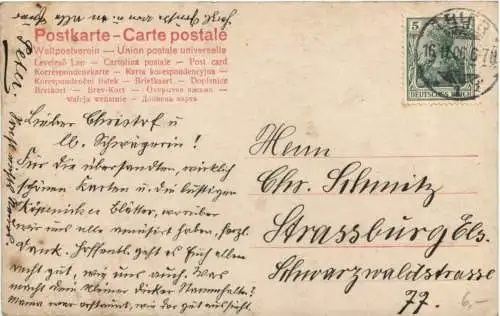 Postkarte – Carte postale
Weltpostverein – Union postale universelle
Levelező Lap – Cartolina postale – Post card
Korrespondenzkarte – Karta korespondencyjna
Korespondenční lístek – Briefkaart – Dopisnice
Brefkort – Brev-Kort – Открытое письмо
5
DEUTSCHES REICH
Lieber Christof u
lb. Schwägerin!
Für die übersandten, wirklich
schönen Karten u. die lustigen
Köpenicker Blätter, worüber
wir uns alle amüsirt haben, herzl.
Dank. Hoffentl. geht es Euch allen
recht gut, wie uns auch. Was
macht denn kleiner dicker Stammhalter?
Mama war erstaunt, wie der gut aussieht
Herrn
Chr. Schmitz
Strassburg Els.
Schwarzwaldstrasse
77.
6,-